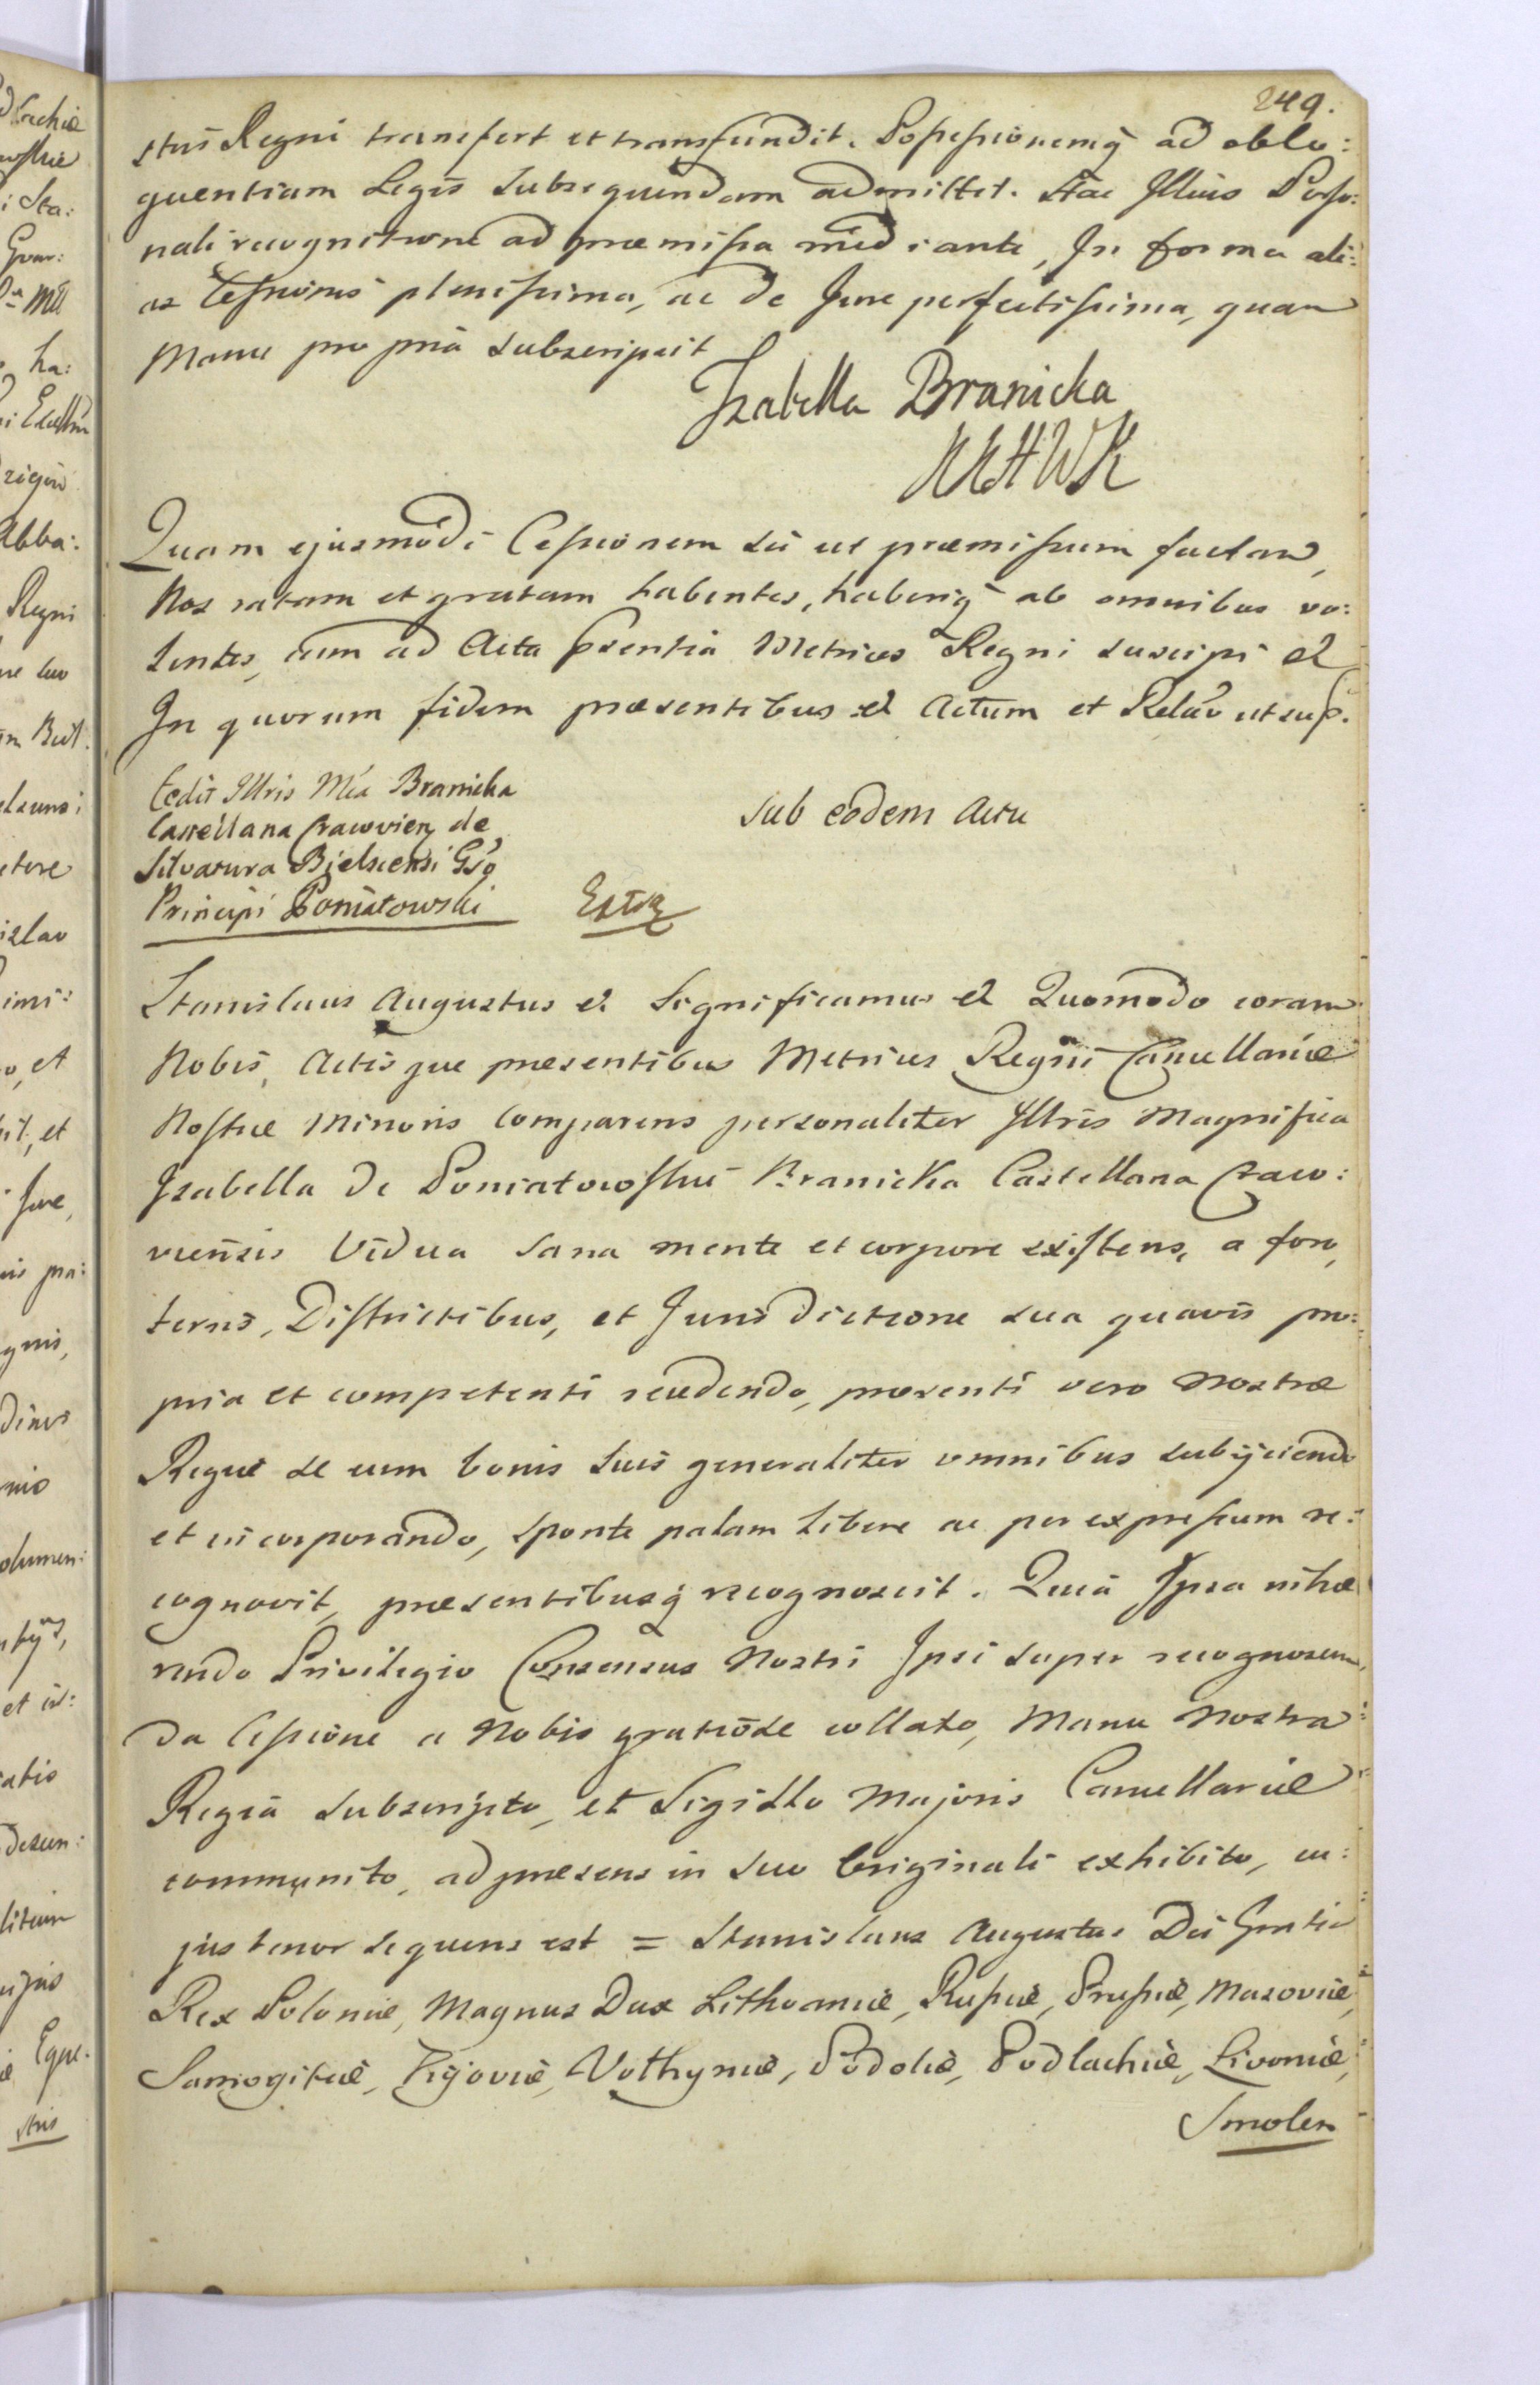 249.
stris Regni transfert et transfundit. Possessionemq̃ ad oblo:
quentiam Legis subsequendam admittit. Hac Illius Perso:
nali recognitione ad præmissa mediante, In forma ali:
as Cessionis plenissima, ac de Jure perfectissima, quam
Manu pro pria subscripsit
Izabella Branicka
KKHWK
Quam ejusmodi Cessionem sic ut præmissum factam,
Nos ratam et gratam habentes, haberiq̃ ab omnibus vo:
lentes, eam ad Acta pņtia Metrices Regni suscipi &
In quorum fidem præsentibus & Actum et Relaõ ut sup.
Cedit Illris Mca Branicka
Castellana Cracovien̄ de
Silvatura Bielscensi Gso
Principi Poniatowski
Extr
Sub eodem Actu
Stanislaus Augustus & Significamus & Quomodo coram
Nobis, Actis que præsentibus Metrices Regni Cancellariæ
Nostræ Minoris Comparens personaliter Illris Magnifica
Izabella de Poniatowskie Branicka Castellana Craco:
viensis Vidua sana mente et corpore existens, a foro,
terris, Districtibus, et Jurisdictione sua quavis pro:
pria et competenti recedendo, præsenti vero Nostræ
Regiæ se cum bonis suis generaliter omnibus subijciendo
et incorporando, sponte palam libere ac per expressum re:
cognovit, præsentibusq̃ recognoscit. Quia Ipsa inhæ
rendo Privilegio Consensus Nostri Ipsi super recognoscen
da Cessione a Nobis gratiose collato, Manu Nostra
Regia subscripto, et Sigillo Majoris Cancellariæ
communito, ad præsens in suo Originali exhibito, cu:
jus tenor sequens est = Stanislaus Augustus Dei Gratia
Rex Poloniæ, Magnus Dux Lithvaniæ, Russiæ, Prussiæ, Masoviæ,
Samogitiæ, Kijoviæ, Volhyniæ, Podoliæ, Podlachiæ, Livoniæ,
Smolen